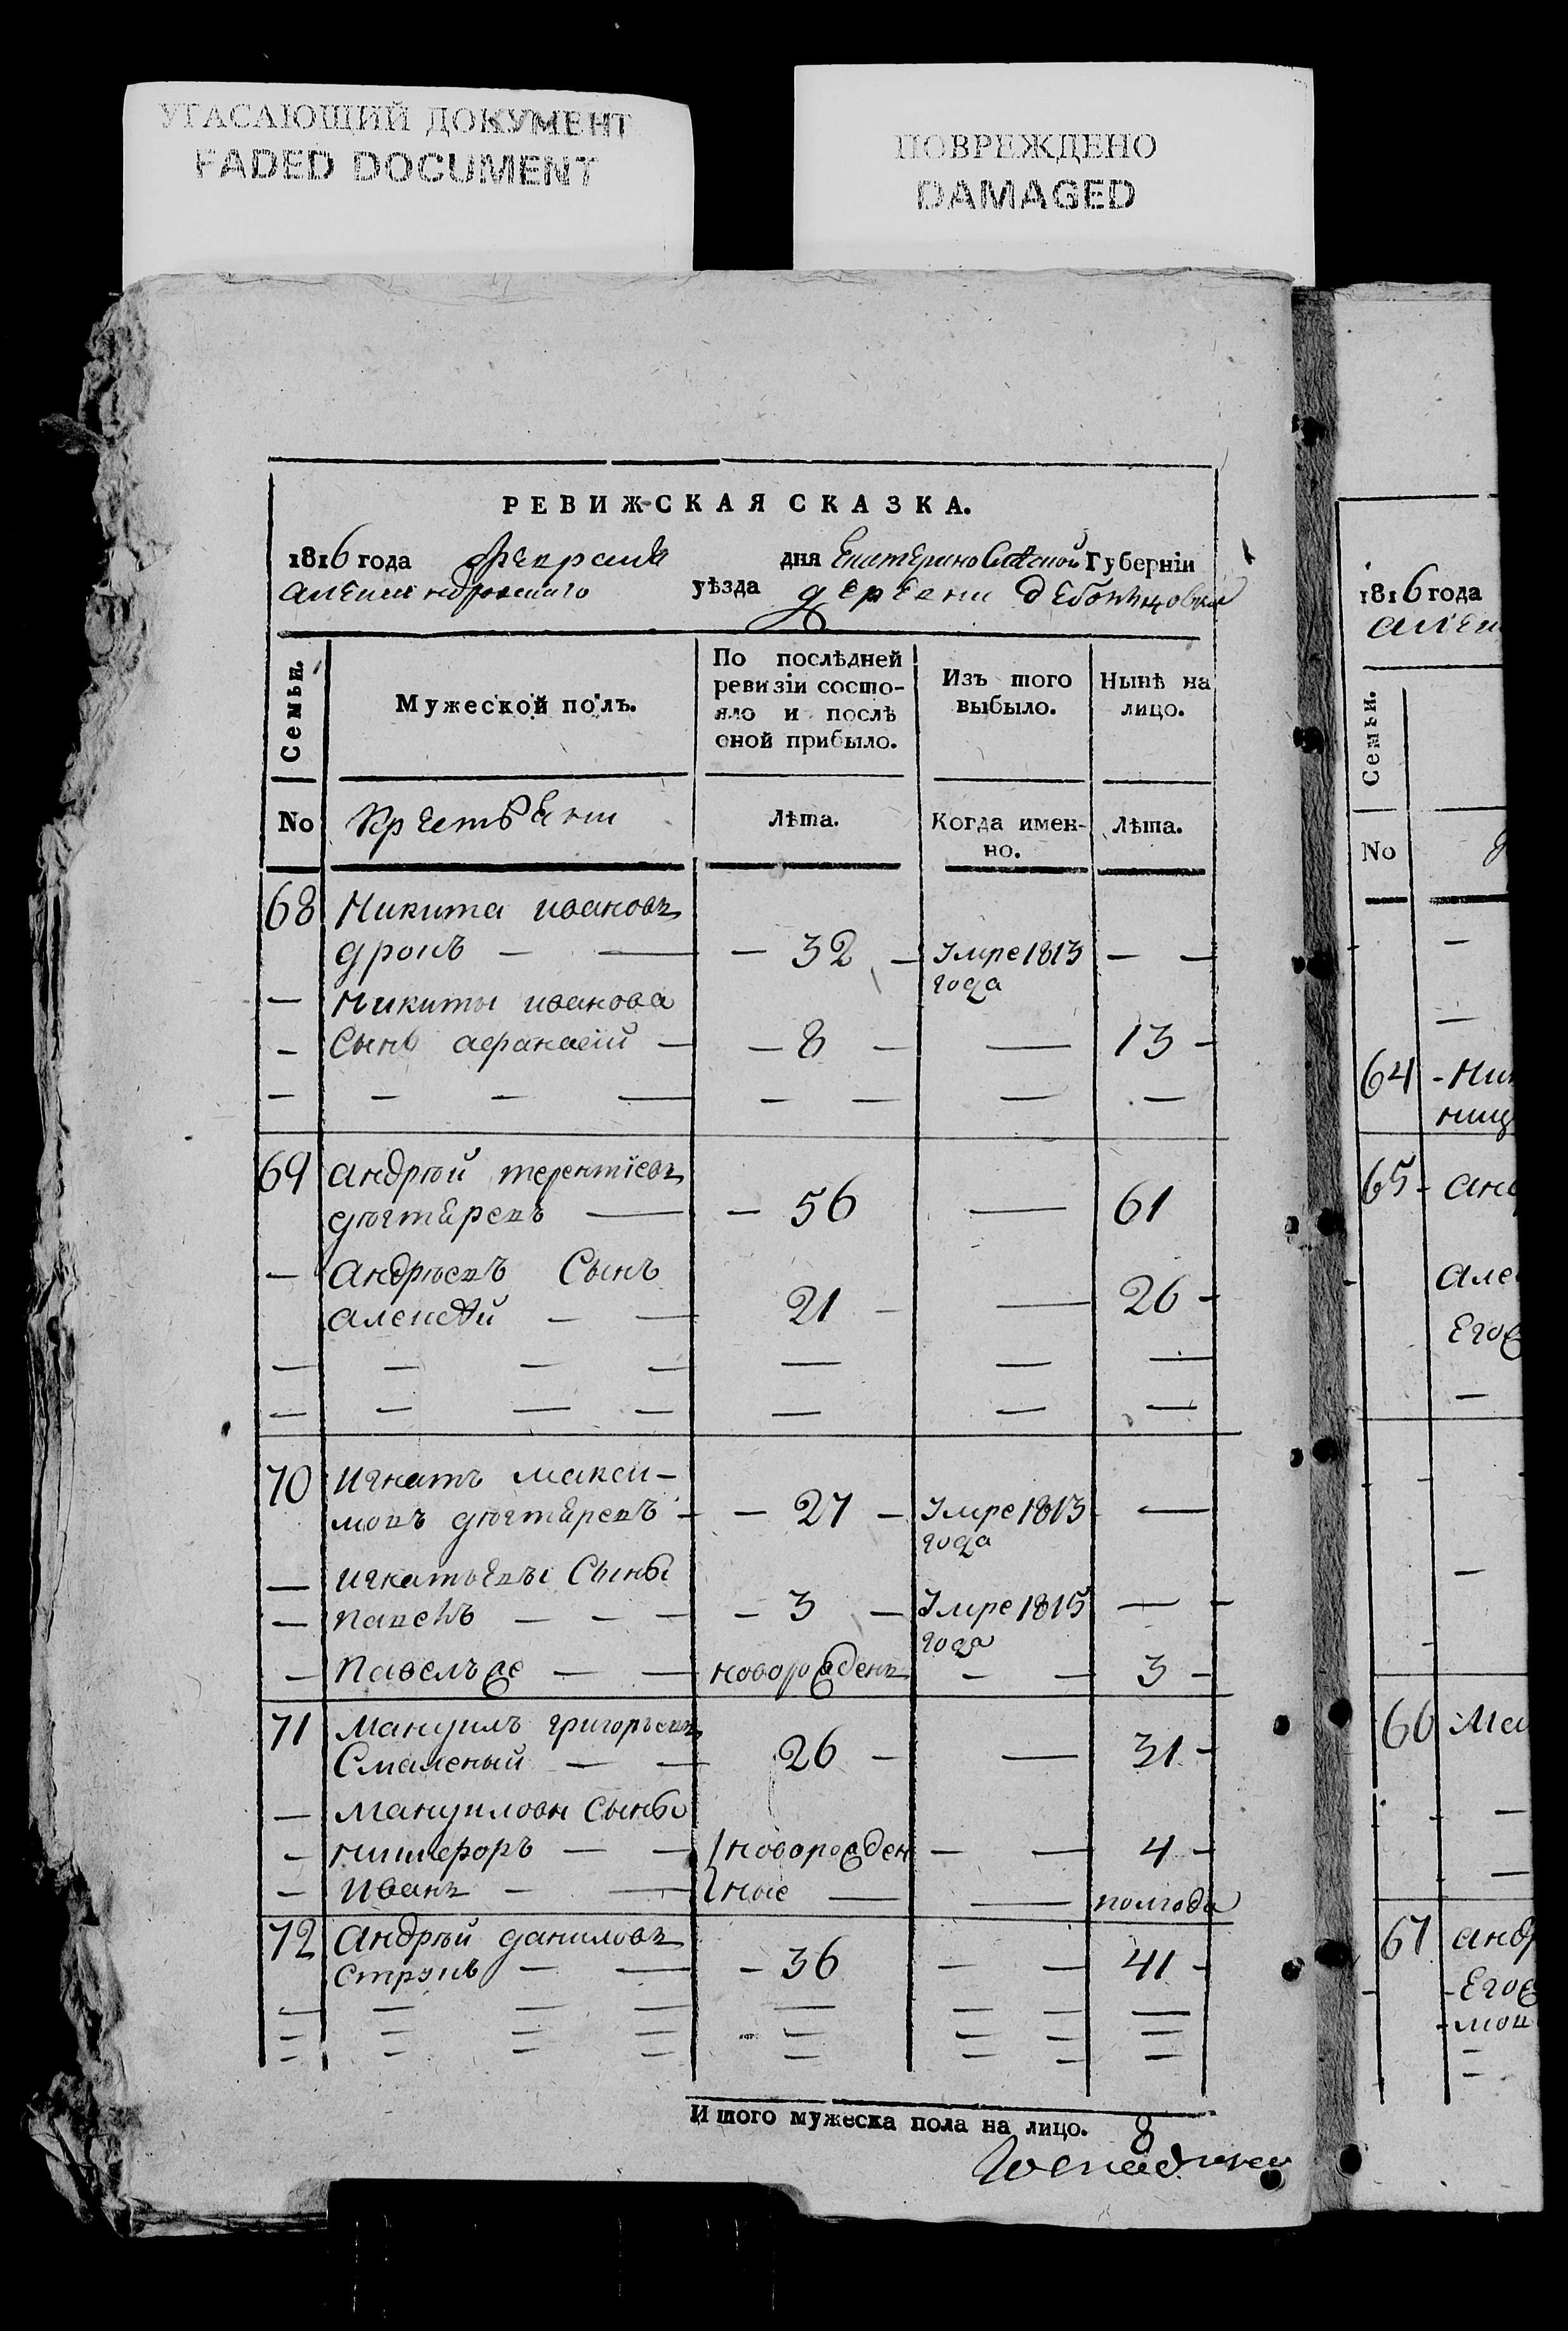 УГАСАЮЩИЙ ДОКУМЕНТ
FADED DOCUMENT
ПОВРЕЖДЕНО
DAMAGED
РЕВИЖСКАЯ СКАЗКА.
1816 года февраля дня Екатеринославской Губерніи
александровскаго уѣзда деревни
Семьи.
Мужеской полъ.
По послѣдней ревизіи состо-
яло и послѣ
оной прибыло.
Изъ того
выбыло.
Нынѣ на
лицо.
No
крестьяни
Лѣта.
Когда имен-
но.
Лѣта.
68 Никита ивановъ
дронъ — — 32 — Умре 1813 — —
года
— Никиты иванова
— Сынъ афанасій — — 8 — — 13 —
69 андрѣй терентіевъ
дюгтяревъ — — 56 — 61
— андрѣевъ Сынъ
алексѣй — — 21 — — 26 —
70 игнатъ макси-
мовъ дюгтяревъ — — 27 — Умре 1813 —
года
— игнатьевы Сыны
— павелъ — — — — 3 — Умре 1815 — —
года
— павелъ же — — новорожденъ — — 3 —
71 мануилъ григорьевъ
Смаленый — — 26 — — 31 —
— мануиловы Сыны
— никифоръ — — новорожден — — 4 —
— иванъ — — ные — — полгода
72 андрѣй даниловъ
— — — 36 — — 41 —
Итого мужеска пола на лицо. 8
1816 года
Семьи.
No
64
65
66
67